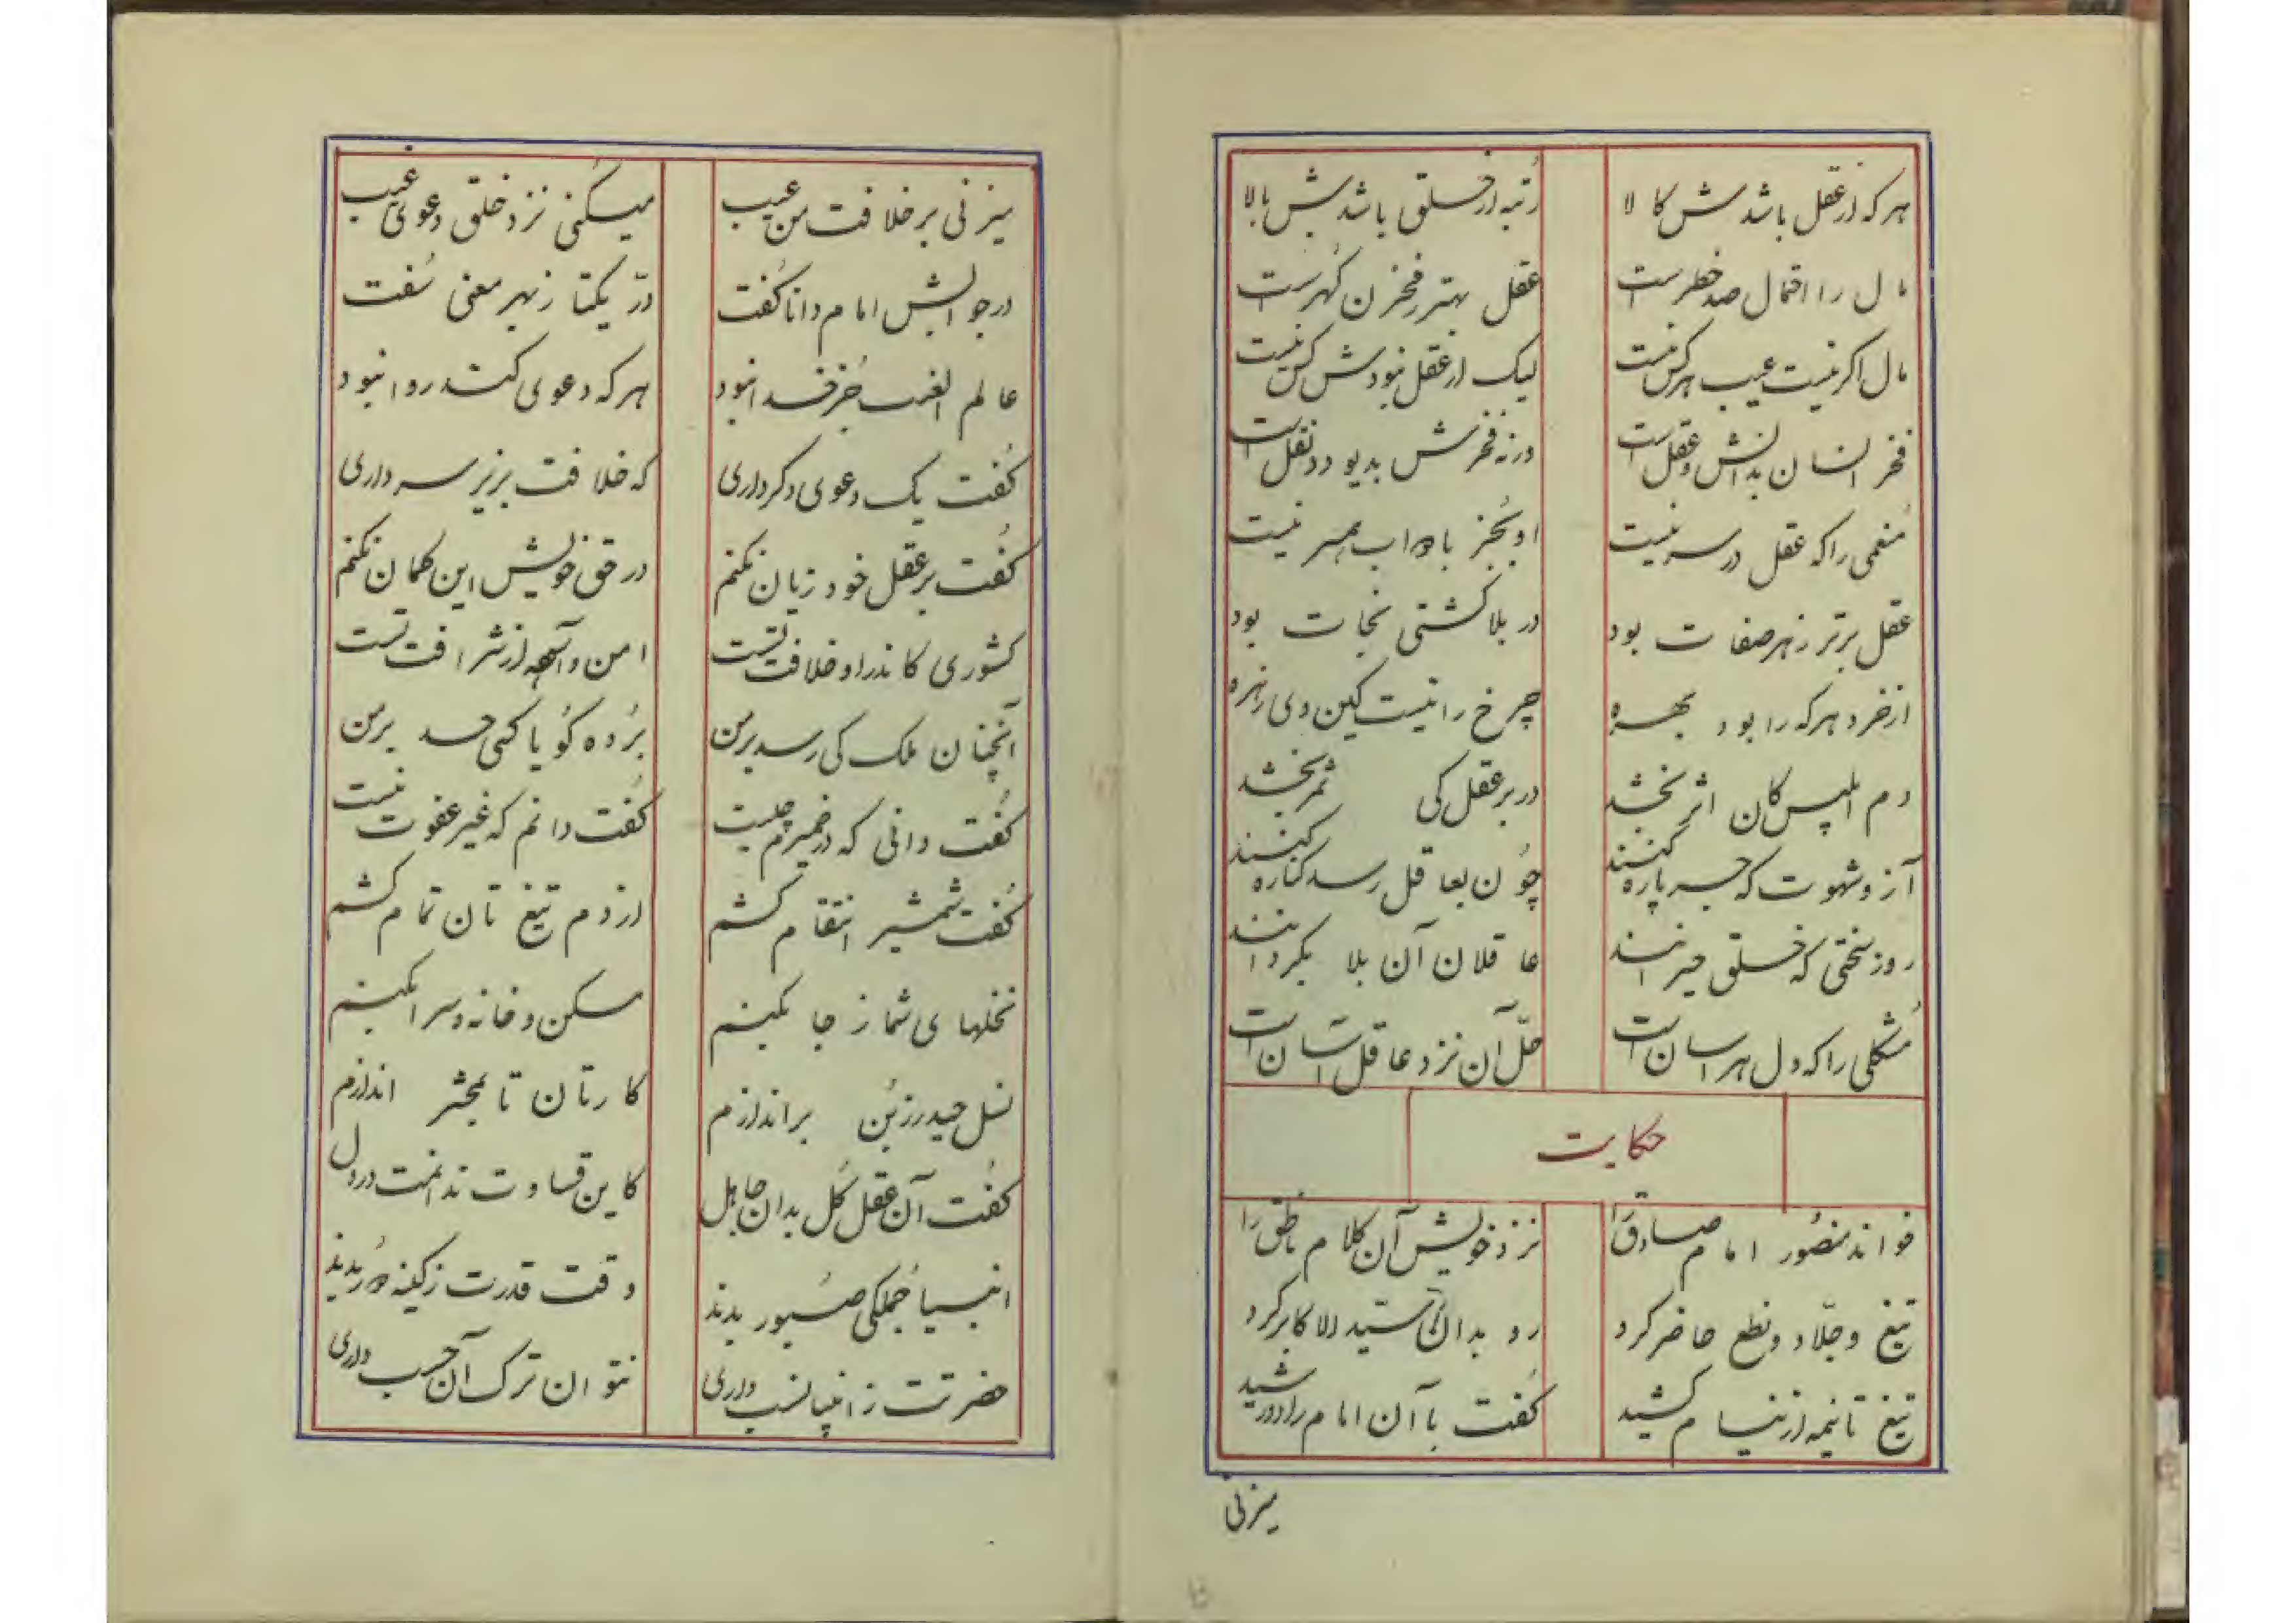 هر که از عقل باشدش کالا رتبه از خلق باشدش بالا
مال را احتمال صد خطر است عقل بهتر ز مخزن گهر است
مال اگر نیست عیب هر کس نیست لیک از عقل نبودش کس نیست
فخر انسان بدانش و عقل است ورنه فخرش بدیو و دد نقل است
منعمی را که عقل در سر نیست او بجز با دواب همسر نیست
عقل برتر ز هر صفات بود در بلا کشتی نجات بود
از خرد هر که را بود بهره چرخ را نیست کین وی زهره
دم ابلیس کان اثر بخشد در بر عقل کی ثمر بخشد
آز و شهوت که جسر پاره کنند چون بعاقل رسد کناره کنند
روز سختی که خلق حیرانند عاقلان آن بلا بگردانند
مشکلی را که دل هراسان است حلّ آن نزد عاقل آسان است
حکایت
خواند منصور امام صادق را نزد خویش آن کلام ناطق را
تیغ و جلّاد و نطع حاضر کرد رو بدان سیّد الاکابر کرد
تیغ تا نیمه از نیام کشید گفت با آن امام راد رشید
میزنی
میزنی بر خلافت من عیب میکنی نزد خلق دعوی غیب
در جوابش امام دانا گفت درّ یکتا ز بهر معنی سُفت
عالم الغیب جز خدا نبود هر که دعوی کند روا نبود
گفت یک دعوی دگر داری که خلافت بزیر سر داری
گفت بر عقل خود زیان نکنم در حق خویش این گمان نکنم
کشوری کاندر او خلافت تست امن و آسوده از شرافت تست
آنچنان ملک کی رسد بر من برده گویا کسی حسد بر من
گفت دانی که در ضمیرم چیست گفت دانم که غیر عفوت نیست
گفت شمشیر انتقام کشم از دم تیغ تان تمام کشم
نخلهای شما ز جا بکنم مسکن و خانه و سرا بکنم
نسل حیدر ز بُن بر اندازم کارتان تا بمحشر اندازم
گفت آن عقل کُل بدان جاهل کاین قساوت ندانمت در دل
انبیا جُملکی صبور بدند وقت قدرت ز کینه دور بدند
حضرتت ز انبیا نسب داری نتوان ترک آن حسب داری